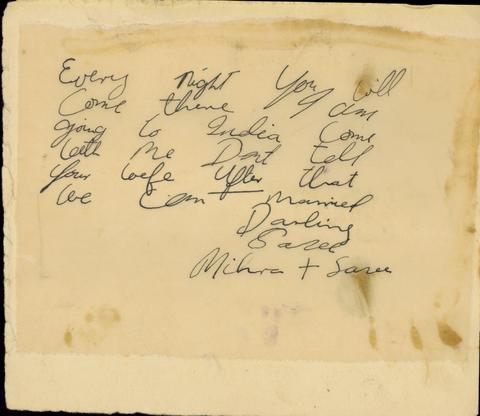 Every night You will
Come there I am
going to India Come
with me Dont tell
Your wefe After that
we Can married
Darling
Saree
Mihra + Saree